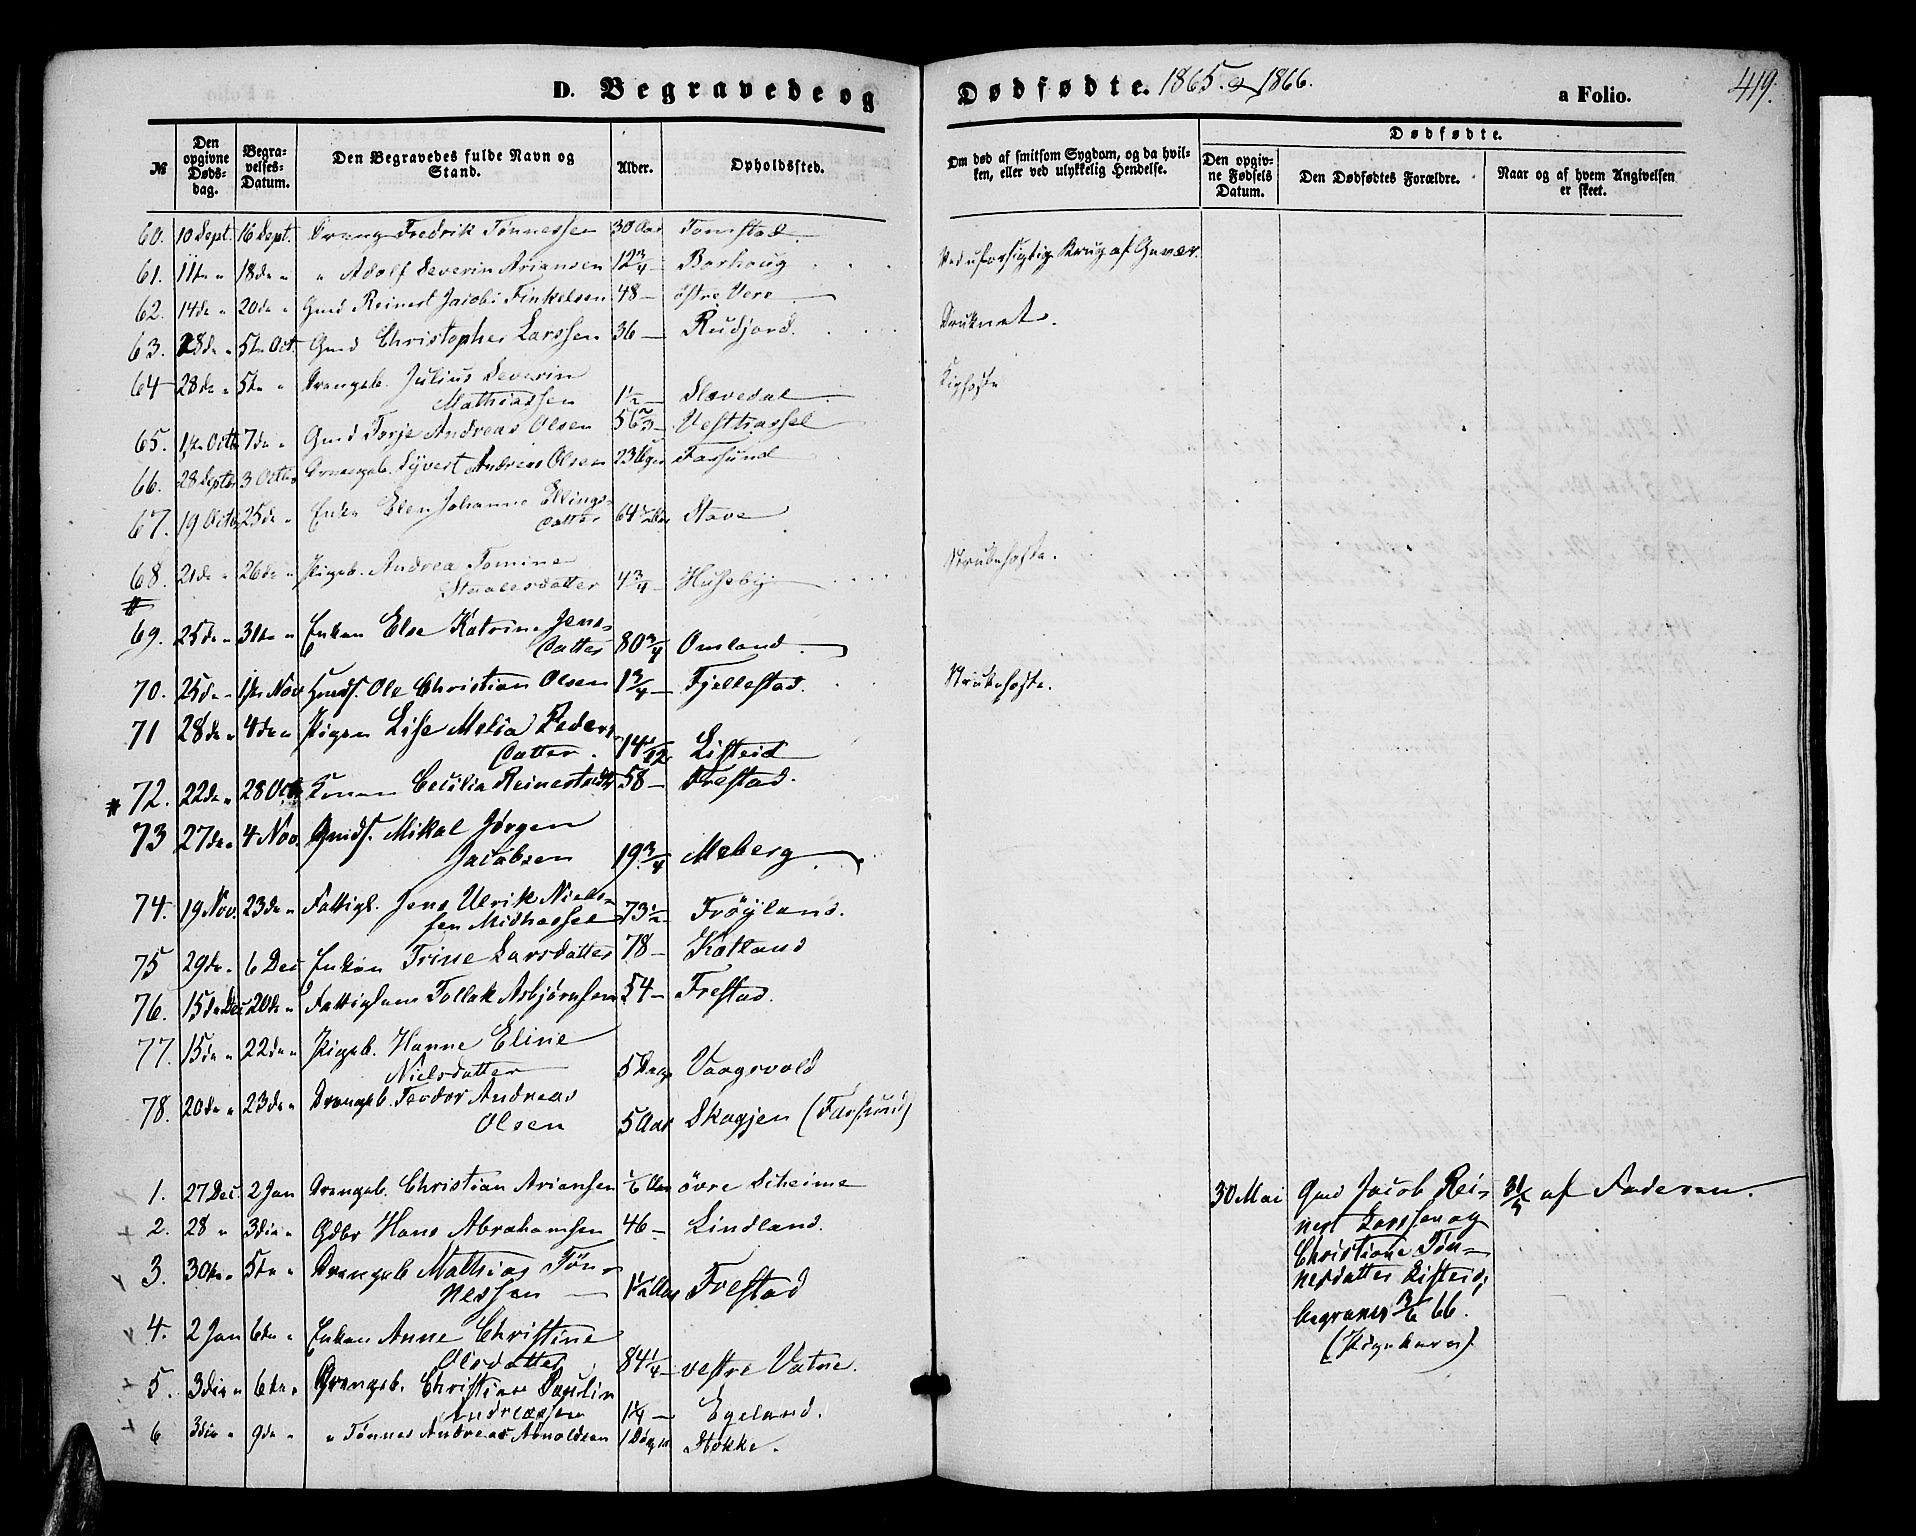 D. Begravede og Dødfødte. 1865 & 1866. a Folio. 419.
№ Den opgivne Døds-dag. Begra-velses-Datum. Den Begravedes fulde Navn og Stand. Alder. Opholdssted. Om død af smitsom Sygdom, og da hvil-ken, eller ved ulykkelig Hendelse. Dødfødte. Den opgiv-ne Fødsels Datum. Den Dødfødtes Forældre. Naar og af hvem Angivelsen er skeet.
60. 10 Sept. 16 Sept. Dreng Fredrik Tønnessen 30 Aar Tomstad.
61. 11te " 18de " " Adolf Severin Ariansen 12 3/4 — Borhoug Ved uforsigtig Brug af Gevær.
62. 14de " 20de " Gmd Reinert Jacobi Finkelsen 48 — østre Vere
63. 28de " 5te Oct. Gmd Christopher Larssen 36 — Rudjord. Druknet.
64 28de " 5te " Drengeb. Julius Severin
Mathiassen 1 1/2 — Slevedal Kighoste
65. 1ste Octb 7de " Gmd Torje Andreas Olsen 56 2/3 — Vesthassel
66. 28 Septbr 3 Octbr Drengeb. Syvert Andreas Olsen 23 Uger Farsund
67. 19 Octb. 25de " Enke Elen Johanne Ellings-
datter 64 1/2 Aar Stave
68. 21de " 26de " Pigeb. Andrea Tomine
Staalesdatter 4 3/4 — Huseby Strubehoste.
69. 25de " 31te " Enken Else Katrine Jens-
datter 80 3/4 Omland.
70. 25de " 1ste Nov. Gmds. Ole Christian Olsen 1 3/4 — Fjellestad. Strubehoste.
71 28de " 4de " Pigen Lise Melia Peders-
datter. 14 1/12 Listeid
72. 22de " 28 Oct. Konen Cecilia Reinertsdtr 58 — Frestad.
73 27de " 4 Nov. Gmds. Mikal Jørgen
Jacobsen 19 3/4 Meberg
74. 19 Nov. 23de " Fattigl. Jens Ulrik Niels-
sen Midhassel 73 1/2 Frøyland.
75 29de " 6 Dec Enken Trine Larsdatter 78 — Kotland
76. 15de Dec 20de " Fattiglem Tollak Asbjørnsen 54 — Frestad.
77. 15de " 22de " Pigeb. Hanne Eline
Nielsdatter 5 Dage Vaagsvold
78. 20de " 23de " Drengeb. Teodor Andreas
Olsen 5 Aar Skagjen (Farsund)
1. 27 Dec. 2 Jan Drengeb. Christian Ariansen 1/6 Aar øvre Skeime 30 Mai Gmd Jacob Rei- 31/5 af Faderen.
2. 28 " 3die " Gdbr Hans Abrahamsen 46 — Lindland. nert Larssen og
3. 30te " 5te " Drengeb Mathias Tøn- Christiane Tøn-
nessen — 1 1/2 Aar Frestad nesdatter Listeid,
begraves 3/6 66.
4. 2 Jan 6te " Enken Anne Christine (Pigebarn).
Olsdatter 84 1/4 — vestre Vatne.
5. 3die " 6te " Drengeb. Christian Paulin
Andreassen 1 1/4 — Egeland.
6 3die " 9de " " Tønnes Andreas Arnoldsen 1 Døgn Stokke.